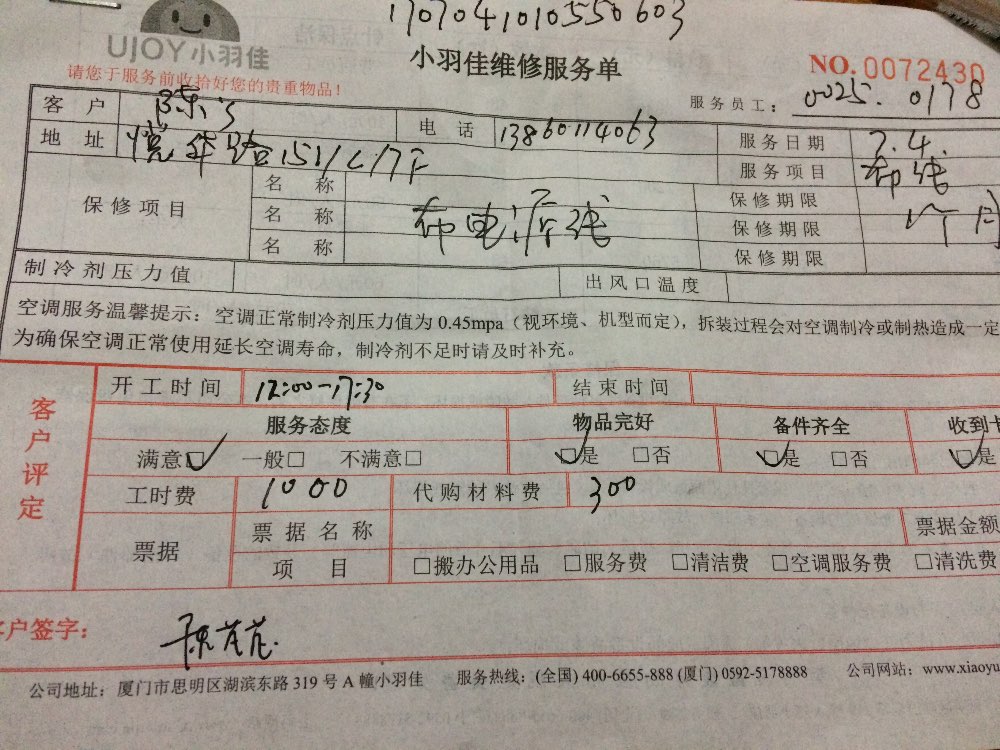 1707041010550603
UJOY小羽佳
小羽佳维修服务单
NO.0072430
请您于服务前收拾好您的贵重物品！
服务员工： 0025. 0178
客户 电话 13860114063 服务日期 7.4.
地址 悦华路151/C/17F 服务项目 布线
保修项目 名称 布电源线 保修期限 1个月
名称 保修期限
名称 保修期限
制冷剂压力值 出风口温度
空调服务温馨提示：空调正常制冷剂压力值为 0.45mpa（视环境、机型而定），拆装过程会对空调制冷或制热造成一定
为确保空调正常使用延长空调寿命，制冷剂不足时请及时补充。
客户评定
开工时间 12:00-17:30 结束时间
服务态度 物品完好 备件齐全 收到
满意□ 一般□ 不满意□ □是 □否 □是 □否 □是
工时费 1000 代购材料费 300
票据 票据名称 票据金额
项目 □搬办公用品 □服务费 □清洁费 □空调服务费 □清洗费
客户签字：
公司地址：厦门市思明区湖滨东路 319 号 A 幢小羽佳 服务热线：(全国) 400-6655-888 (厦门) 0592-5178888 公司网站：www.xiaoyu